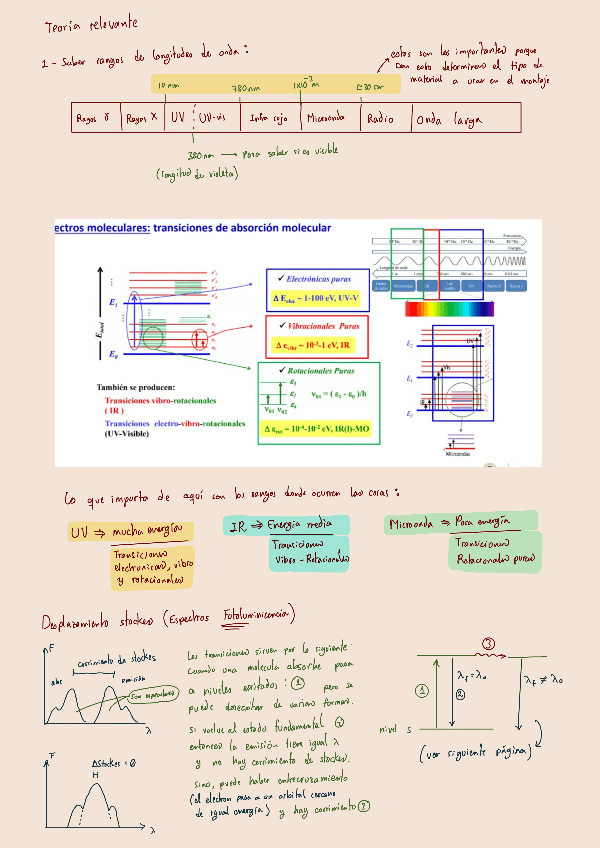 Teoría relevante
1 - Saber rangos de longitudes de onda :
estos son los importantes porque
con esto determinamos el tipo de
material a usar en el montaje
10 nm 780 nm 1x10⁻³ m ≈ 30 cm
Rayos γ Rayos X UV UV-vis Infra rojo Microonda Radio Onda larga
380 nm → Para saber si es visible
(longitud de violeta)
ectros moleculares: transiciones de absorción molecular
✓ Electrónicas puras
Δ E elec ~ 1-100 eV, UV-V
✓ Vibracionales Puras
Δ ε vibr ~ 10⁻²-1 eV, IR
✓ Rotacionales Puras
ν₀₁ = ( ε₁ - ε₀ )/h
ν₀₁ ν₀₂
Δ ε rot ~ 10⁻⁴-10⁻² eV, IR(l)-MO
E total
E₁
E₀
También se producen:
Transiciones vibro-rotacionales
( IR )
Transiciones electro-vibro-rotacionales
(UV-Visible)
Frecuencia
Energía
Longitud de onda
Microondas IR UV
E₂
E₁
E₀
UV
Vis
IR
Microondas
Lo que importa de aquí son los rangos donde ocurren las cosas :
UV ⇒ mucha energía
Transiciones
electrónicas, vibro
y rotacionales
IR ⇒ Energía media
Transiciones
Vibro - Rotacionales
Microonda ⇒ Poca energía
Transiciones
Rotacionales puras
Desplazamiento stockes (Espectros Fotoluminicencia)
F
Corrimiento de stockes
abs emisión
Son especulares
λ
F
Δstockes = 0
H
λ
Las transiciones sirven por lo siguiente:
Cuando una molecula absorbe pasa
a niveles exitados : ① pero se
puede desexcitar de varias formas.
si vuelve al estado fundamental ②
entonces la emisión tiene igual λ
y no hay corrimiento de stockes.
sino, puede haber entrecruzamiento
(el electron pasa a un orbital cercano
de igual energía) y hay corrimiento ③
③
①
λf = λ₀
②
λf ≠ λ₀
nivel S
(ver siguiente página)